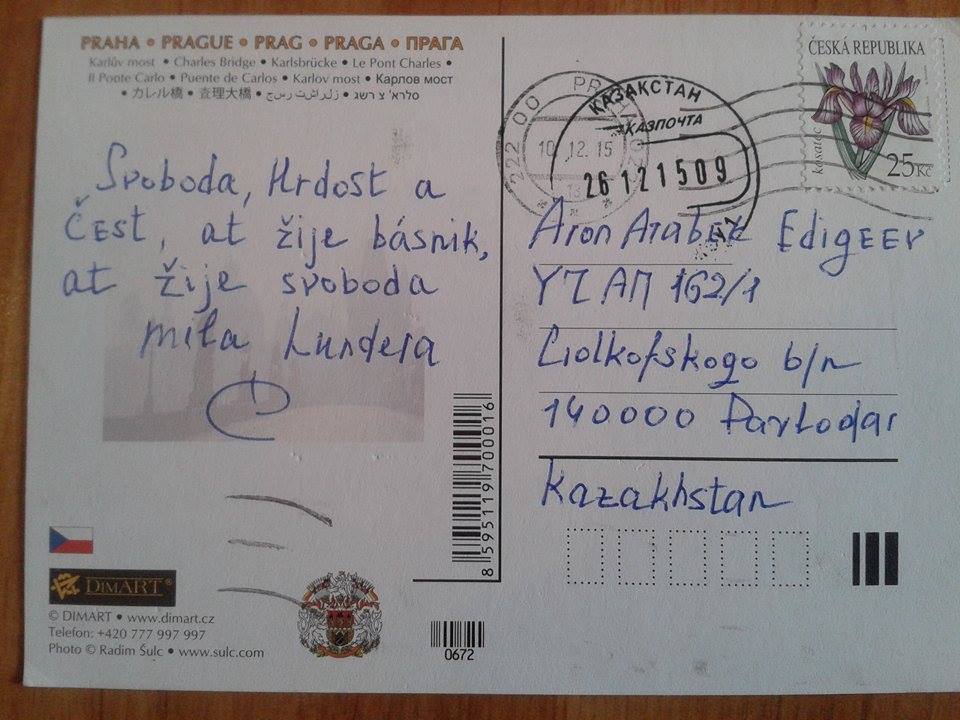 PRAHA • PRAGUE • PRAG • PRAGA • ПРАГА
Karlův most • Charles Bridge • Karlsbrücke • Le Pont Charles •
Il Ponte Carlo • Puente de Carlos • Karlov most • Карлов мост
• カレル橋 • 查理大橋 •
Svoboda, Hrdost a
Čest, at žije básnik,
at žije svoboda
Mila Kundera
DIMART®
© DIMART • www.dimart.cz
Telefon: +420 777 997 997
Photo © Radim Šulc • www.sulc.com
8 595119 700016
0672
ČESKÁ REPUBLIKA
kosatec
25Kč
222 00 PRAHA
10.12.15
КАЗАКСТАН
КАЗПОЧТА
26121509
Aron Atabek Edigeev
YZ AП 162/1
Ciolkofskogo b/n
140000 Pavlodar
Kazakhstan